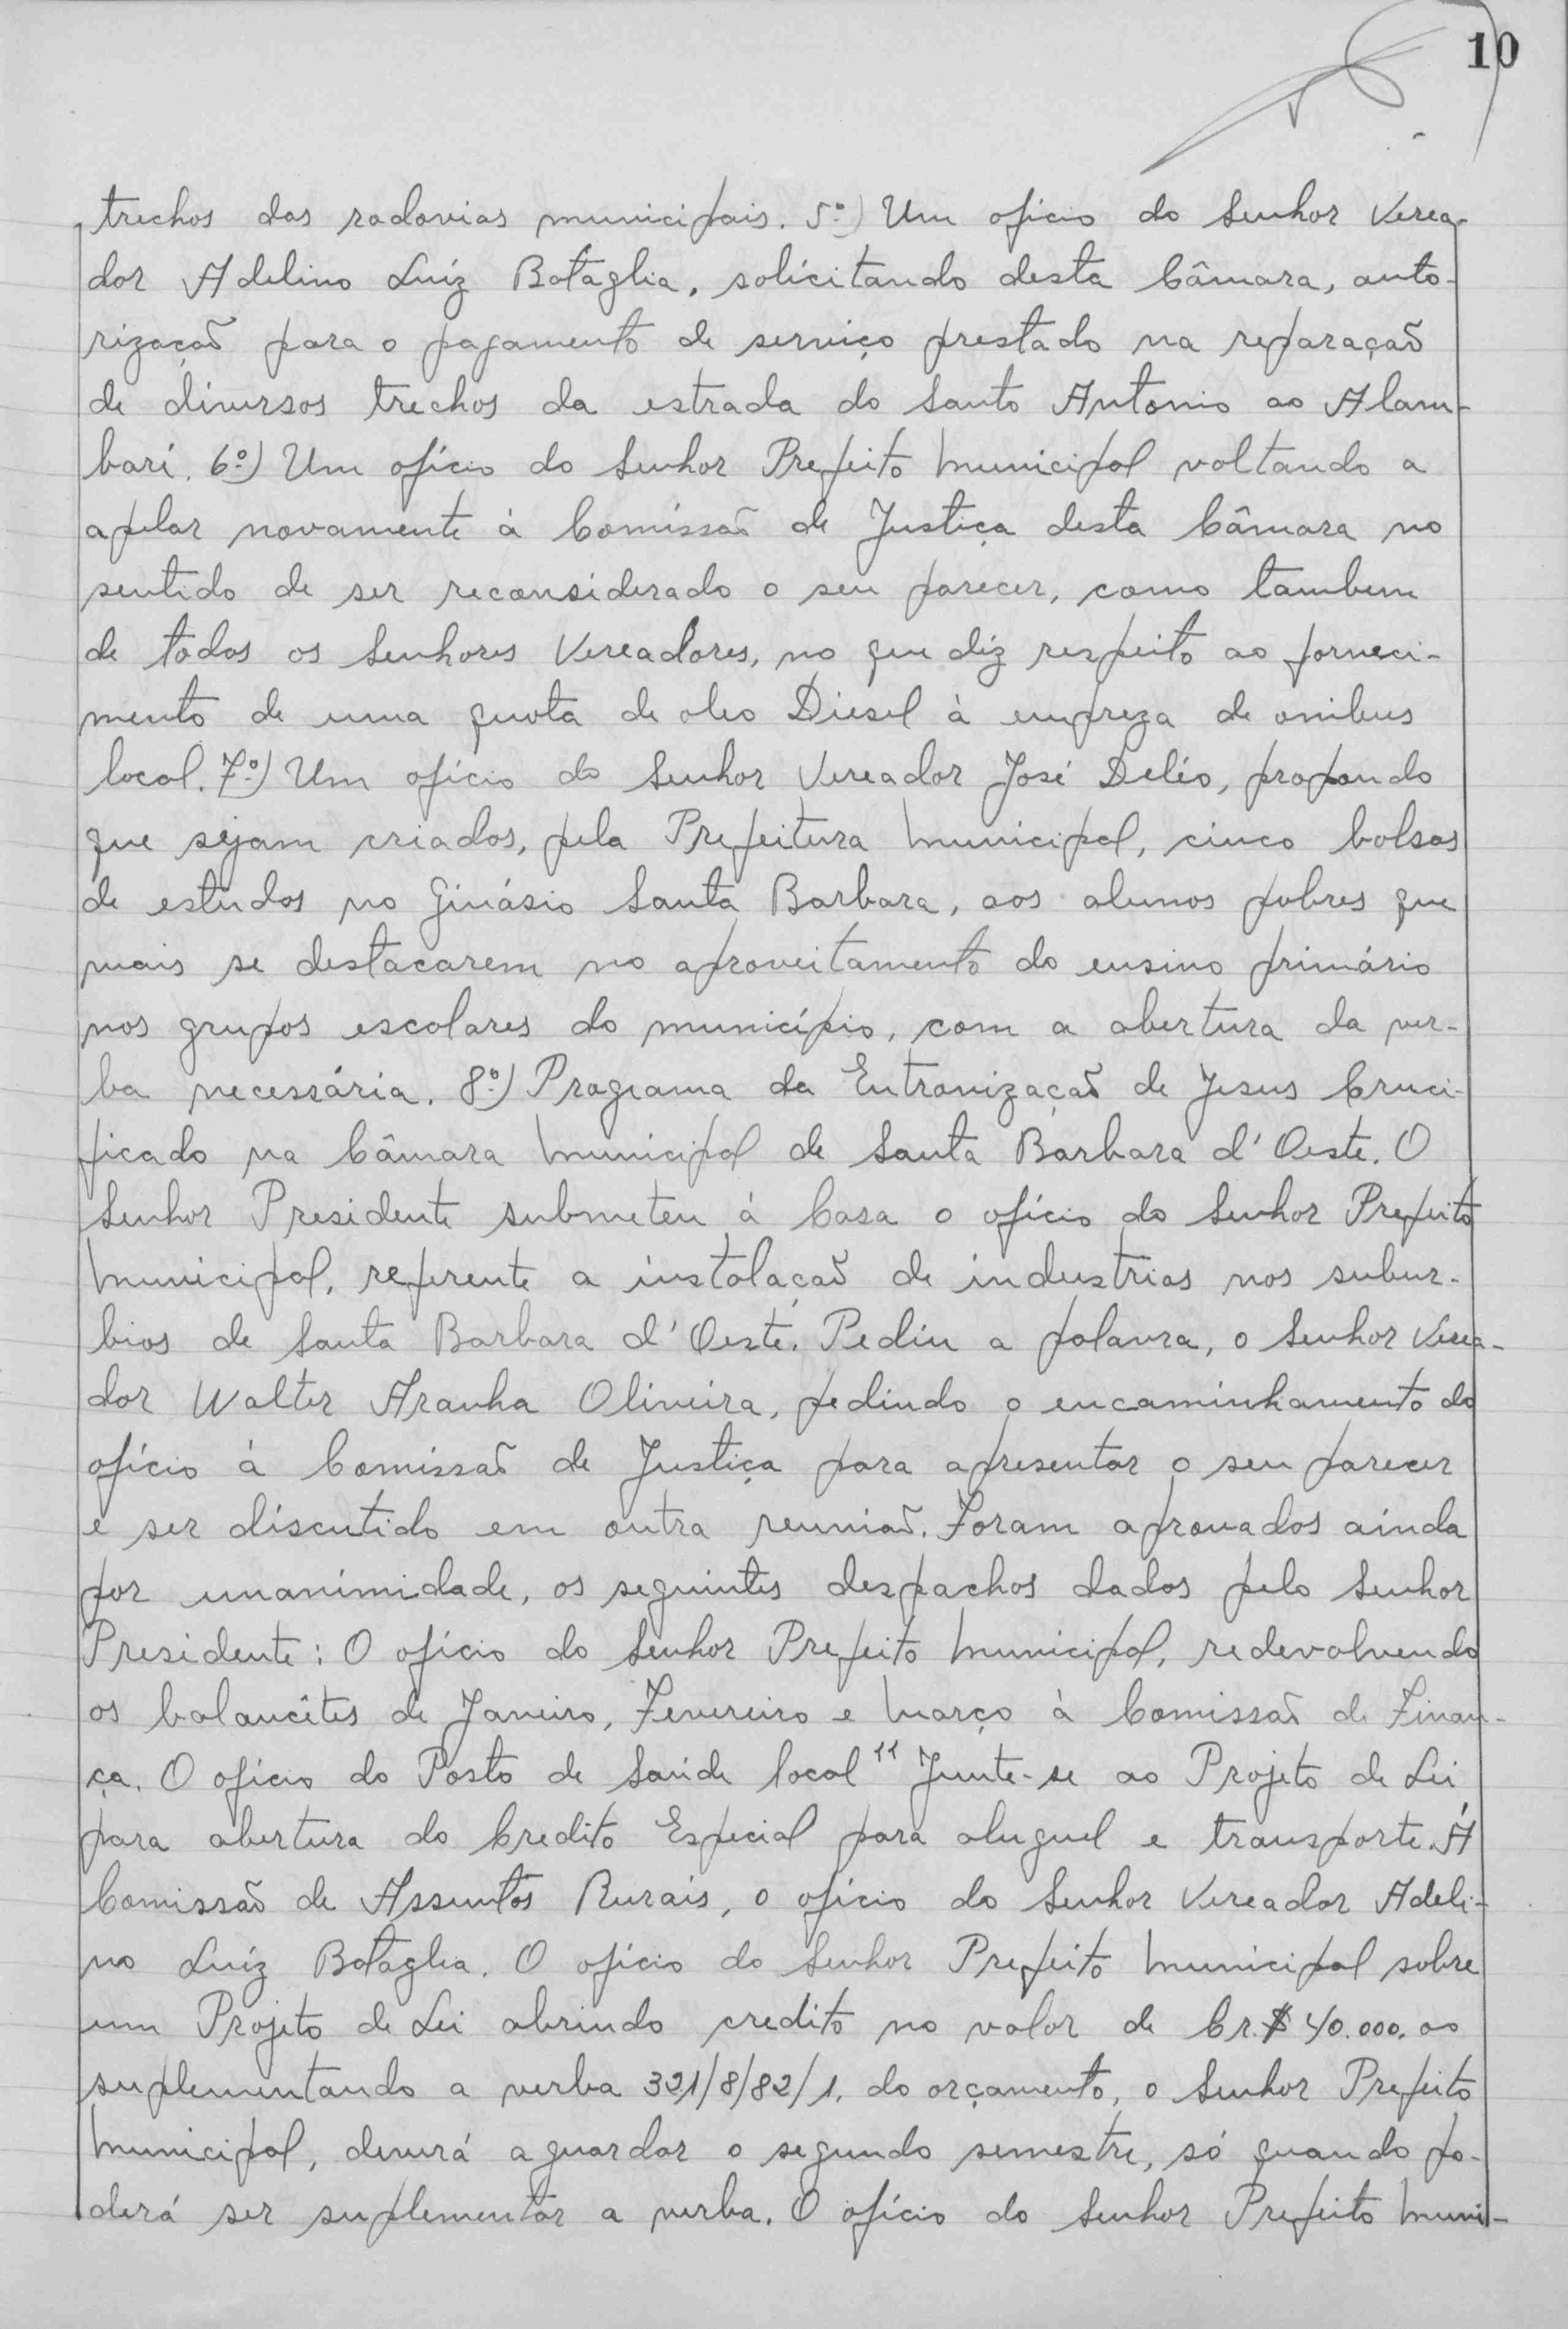 10
trechos das rodovias municipais. 5º) Um oficio do Senhor Verea-
dor Adelino Luiz Bataglia, solicitando desta Câmara, auto-
rização para o pagamento de serviço prestado na reparação
de diversos trechos da estrada do Santo Antonio ao Alam-
bari. 6º) Um ofício do Senhor Prefeito Municipal voltando a
apelar novamente à Comissão de Justiça desta Câmara no
sentido de ser reconsiderado o seu parecer, como tambem
de todos os Senhores Vereadores, no que diz respeito ao forneci-
mento de uma quota de oleo Diesel à empreza de onibus
local. 7º) Um ofício do Senhor Vereador José Deléo, propondo
que sejam criados, pela Prefeitura Municipal, cinco bolsas
de estudos no Ginásio Santa Barbara, aos alunos pobres que
mais se destacarem no aproveitamento do ensino primário
nos grupos escolares do município, com a abertura da ver-
ba necessária. 8º) Programa da Entronização de Jesus Cruci-
ficado na Câmara Municipal de Santa Barbara d'Oeste. O
Senhor Presidente submeteu à Casa o ofício do Senhor Prefeito
Municipal, referente a instalação de industrias nos subur-
bios de Santa Barbara d'Oeste. Pediu a palavra, o Senhor Verea-
dor Walter Aranha Oliveira, pedindo o encaminhamento do
ofício à Comissão de Justiça para apresentar o seu parecer
e ser discutido em outra reunião. Foram aprovados ainda
por unanimidade, os seguintes despachos dados pelo Senhor
Presidente: O ofício do Senhor Prefeito Municipal, redevolvendo
os balancêtes de Janeiro, Fevereiro e Março à Comissão de Finan-
ça. O ofício do Posto de Saúde local " Junte-se ao Projeto de Lei
para abertura do Credito Especial para aluguel e transporte. À
Comissão de Assuntos Rurais, o ofício do Senhor Vereador Adeli-
no Luiz Bataglia. O ofício do Senhor Prefeito Municipal sobre
um Projeto de Lei abrindo credito no valor de Cr.$ 40.000,00
suplementando a verba 321/8/82/1. do orçamento, o Senhor Prefeito
Municipal, deverá aguardar o segundo semestre, só quando po-
derá ser suplementar a verba. O ofício do Senhor Prefeito Muni-